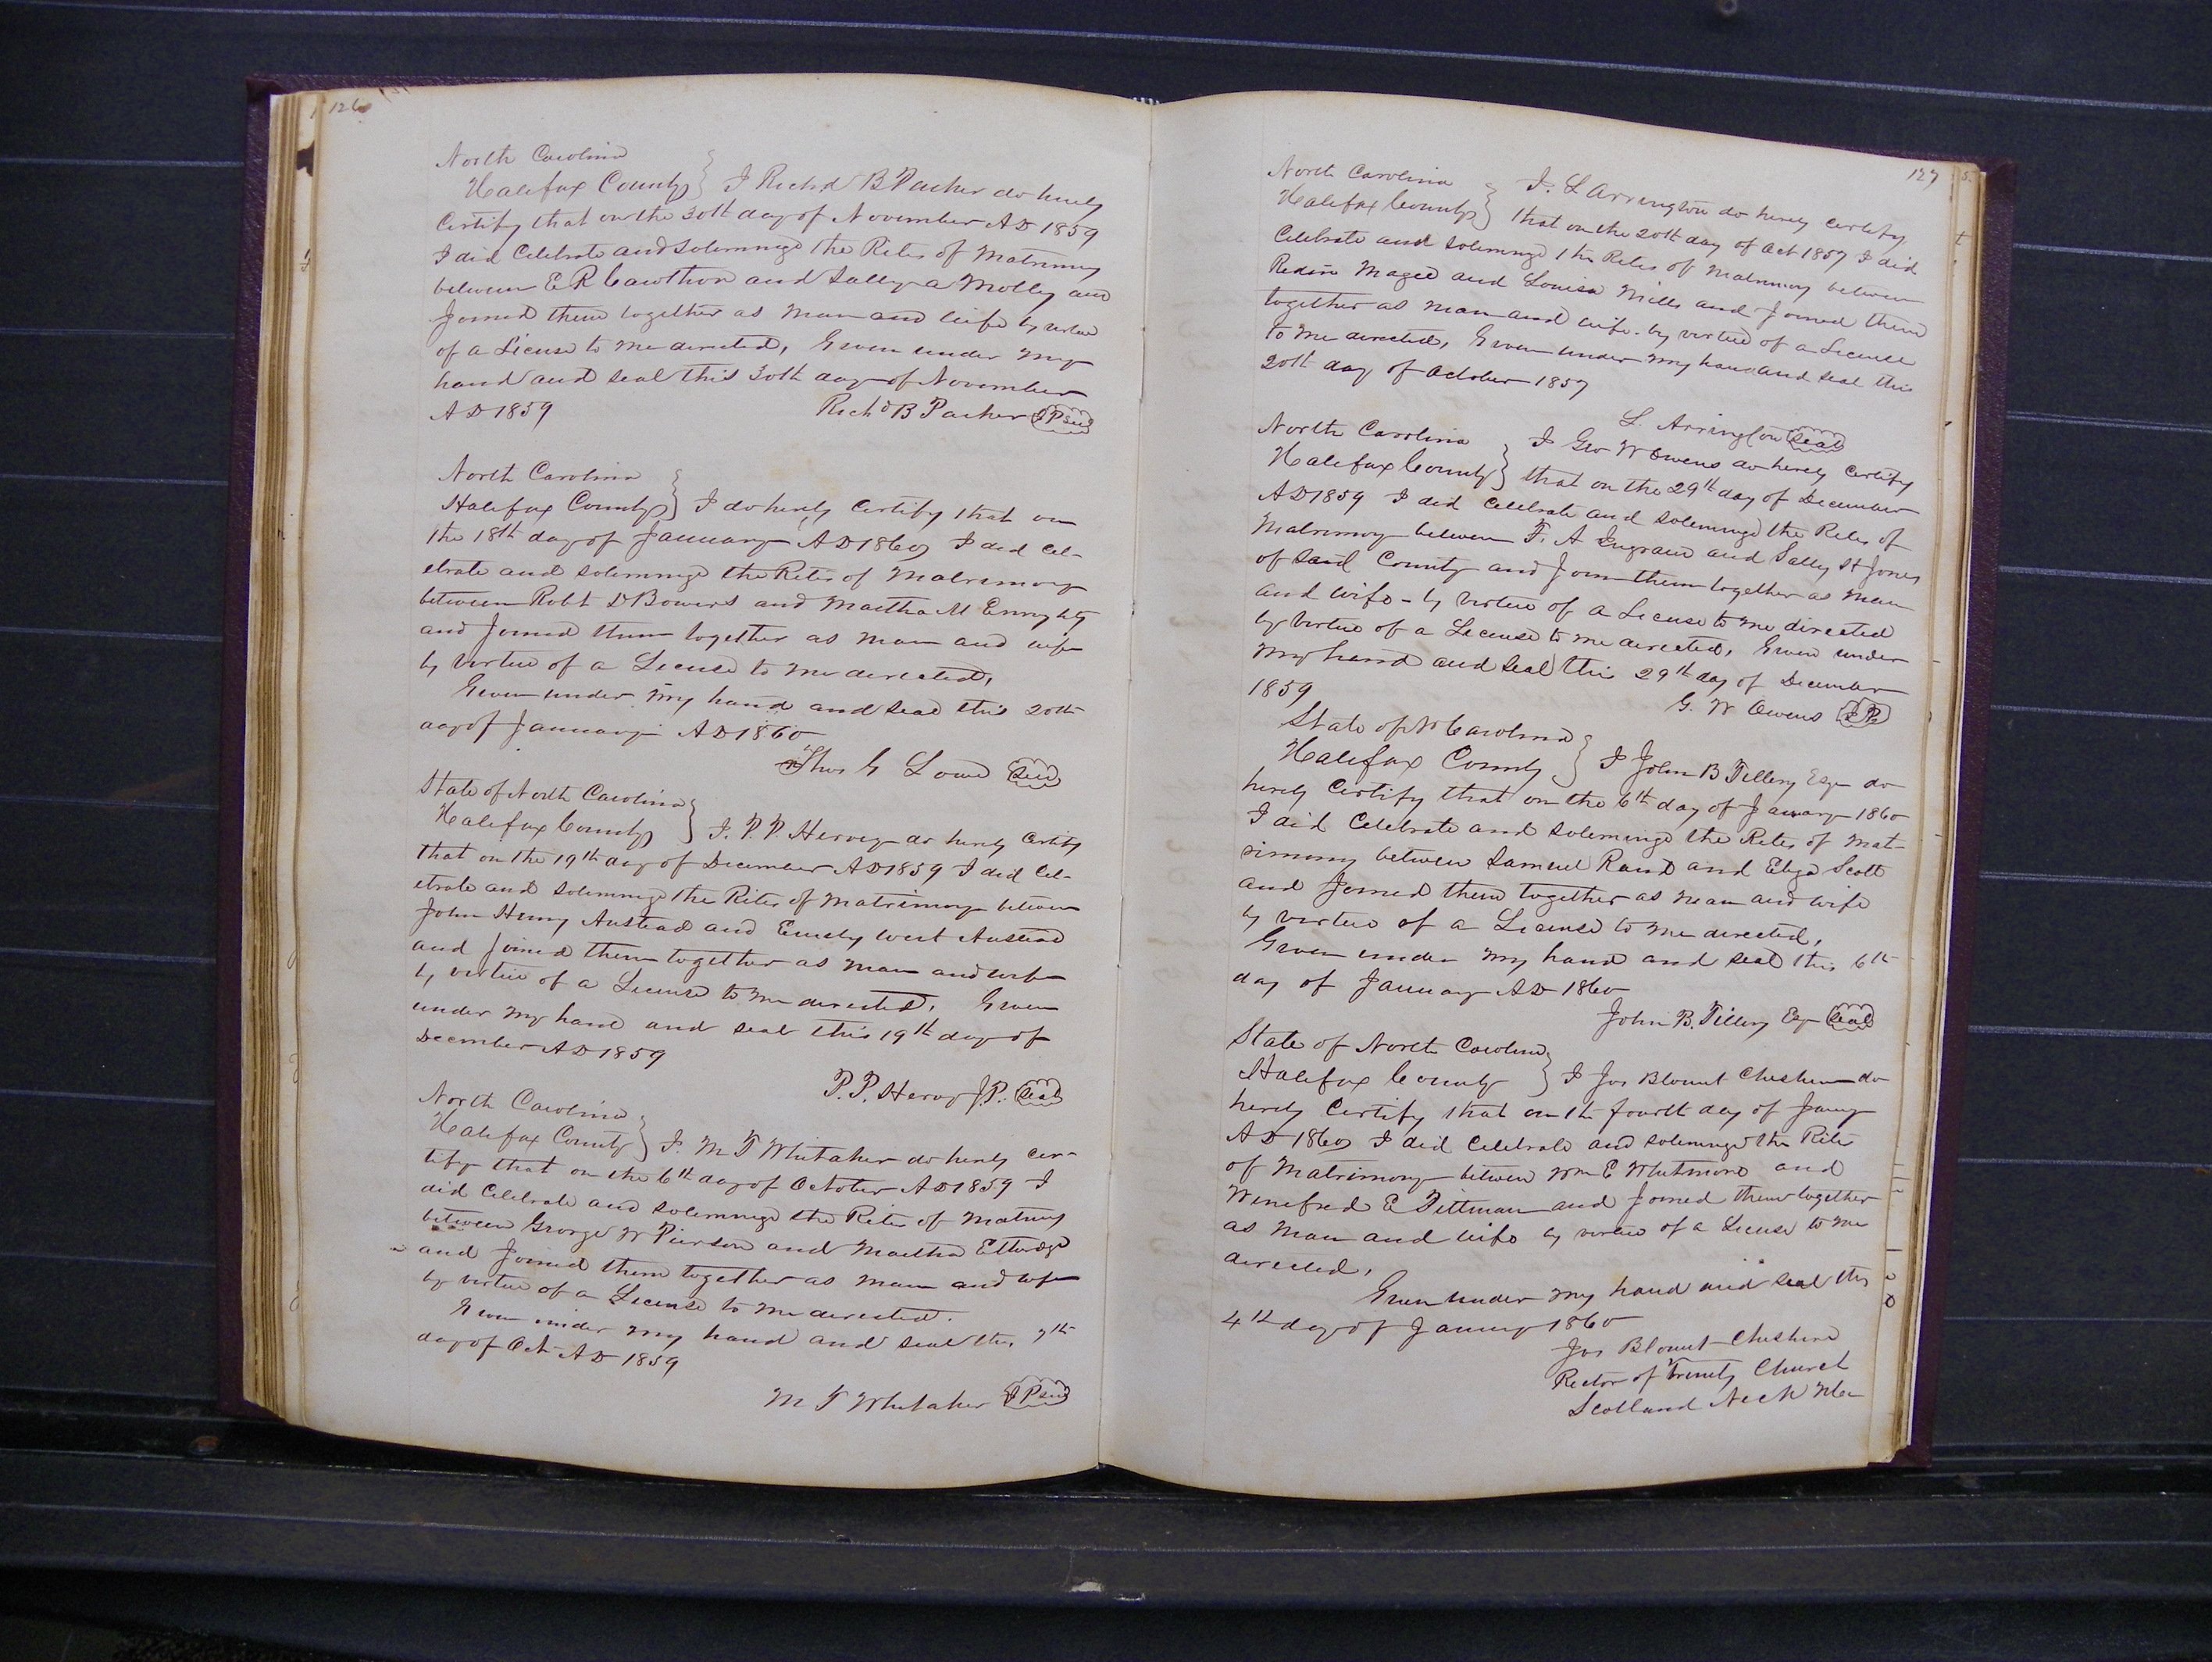 126
North Carolina
Halifax County } I Richd B Parker do herely
Certify that on the 30th day of November AD 1859
I did Celebrate and Solemnize the Rites of Matrimony
between E R Cawthon and Sally a Molly and
Joined them together as Man and wife by virtue
of a License to me directed, Given under my
hand and seal this 30th day of November
AD 1859 Richd B Parker JP seal
North Carolina
Halifax County } I do herely Certify that on
the 18th day of January AD 1860 I did Cel-
ebrate and solemnize the Rites of Matrimony
between Robt D Bowers and Martha M
and Joined them together as man and wife
by virtue of a License to me directed,
Given under my hand and seal this 20th
day of January AD 1860
Thos G Lowe Seal
State of North Carolina
Halifax County } I. P. P. Hervey do herely Certify
that on the 19th day of December AD 1859 I did Cel-
ebrate and solemnize the Rites of Matrimony between
John Henry Austead and Emely West Austead
and joined them together as Man and wife
by virtue of a License to me directed. Given
under my hand and seal this 19th day of
December AD 1859
P. P. Hervey J.P. Seal
North Carolina
Halifax County } I. M T Whitaker do herely cer-
tify that on the 6th day of October AD 1859 I
did Celebrate and solemnize the Rites of Matrimony
between George W Pierson and Martha Etheridge
and Joined them together as Man and wife
by virtue of a License to me directed.
Given under my hand and seal this 7th
day of Oct AD 1859
M T Whitaker JP seal
127
North Carolina
Halifax County } I. L Arrington do herely certify
that on the 20th day of Oct 1857 I did
Celebrate and solemnize the Rites of Matrimony between
Redin Magee and Louisa Mills and Joined them
together as man and wife. by virtue of a License
to me directed, Given under my hand and seal this
20th day of October 1857
L. Arrington Seal
North Carolina
Halifax County } I Geo W Owens do herely Certify
that on the 29th day of December
AD 1859 I did Celebrate and solemnize the Rites of
Matrimony between F. A Ingram and Sally St Jones
of said County and Join them together as Man
and wife - by virtue of a License to me directed
by virtue of a License to me directed, Given under
my hand and seal this 29th day of December
1859 G. W Owens J.P.
State of N Carolina
Halifax County } I John B Tillery Esqr do
herely Certify that on the 6th day of January 1860
I did Celebrate and solemnize the Rites of Mat-
rimony between Samuel Rand and Eliza Scott
and Joined them together as man and wife
by virtue of a License to me directed,
Given under my hand and seal this 6th
day of January AD 1860
John B. Tillery Esqr Seal
State of North Carolina
Halifax County } I Jos Blount Cheshire do
herely Certify that on th fourth day of Jany
AD 1860 I did Celebrate and solemnize the Rites
of Matrimony between Wm E Whitmore and
Winefred E Pittman and Joined them together
as Man and wife by virtue of a License to me
directed,
Given under my hand and seal this
4th day of January 1860
Jos Blount Cheshire
Rector of Trinity Church
Scotland Neck